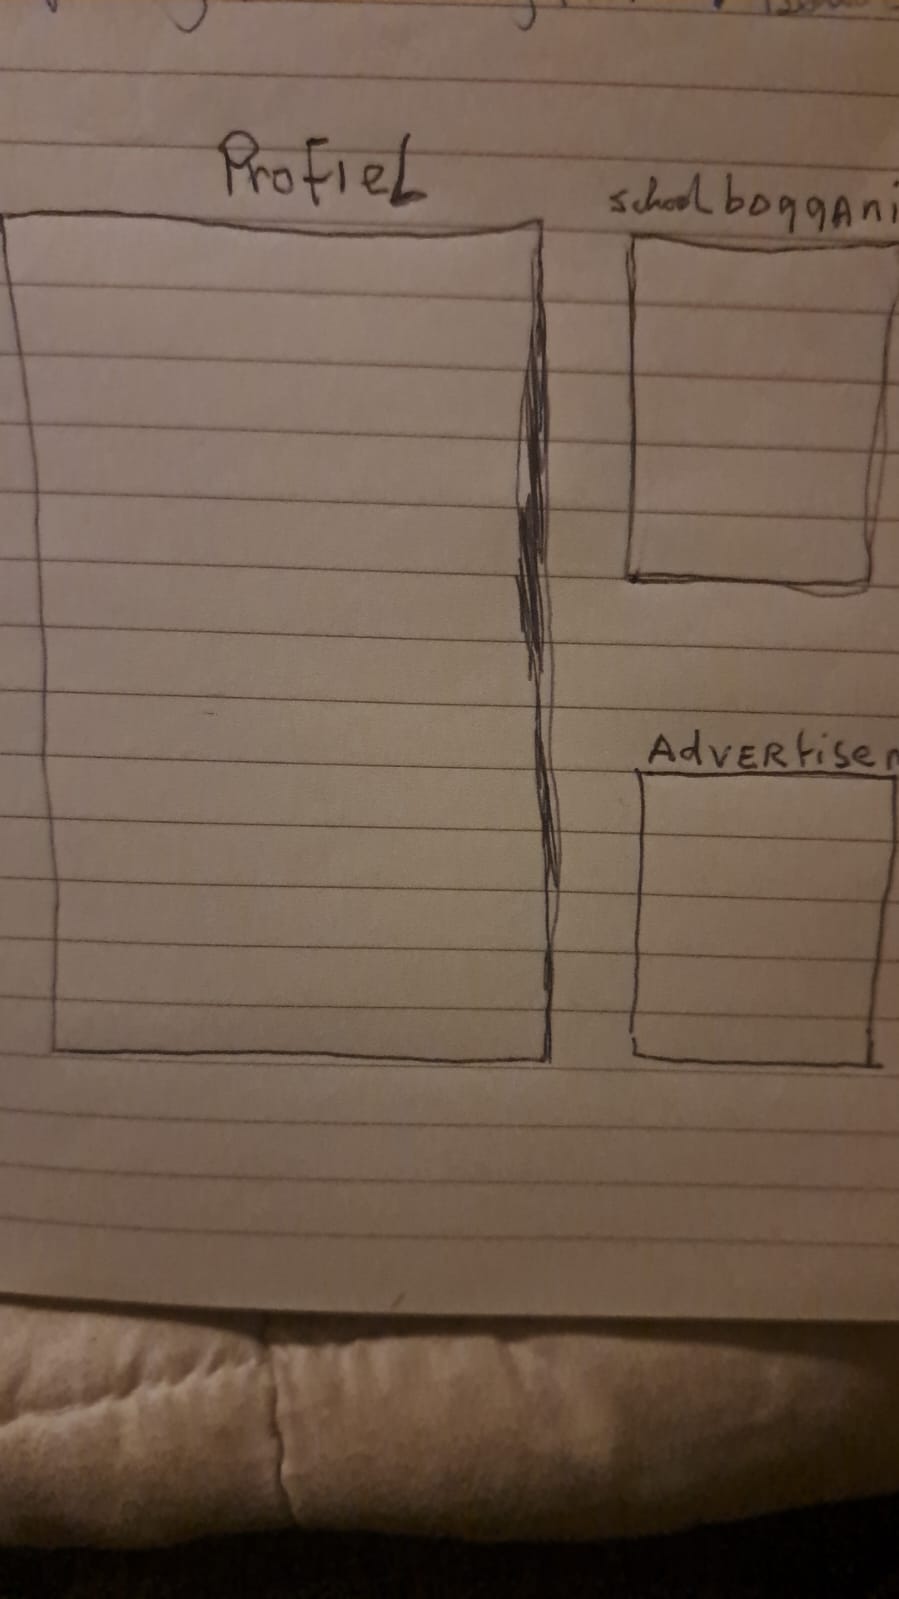 Profiel
schoolboqqAni
Advertisem